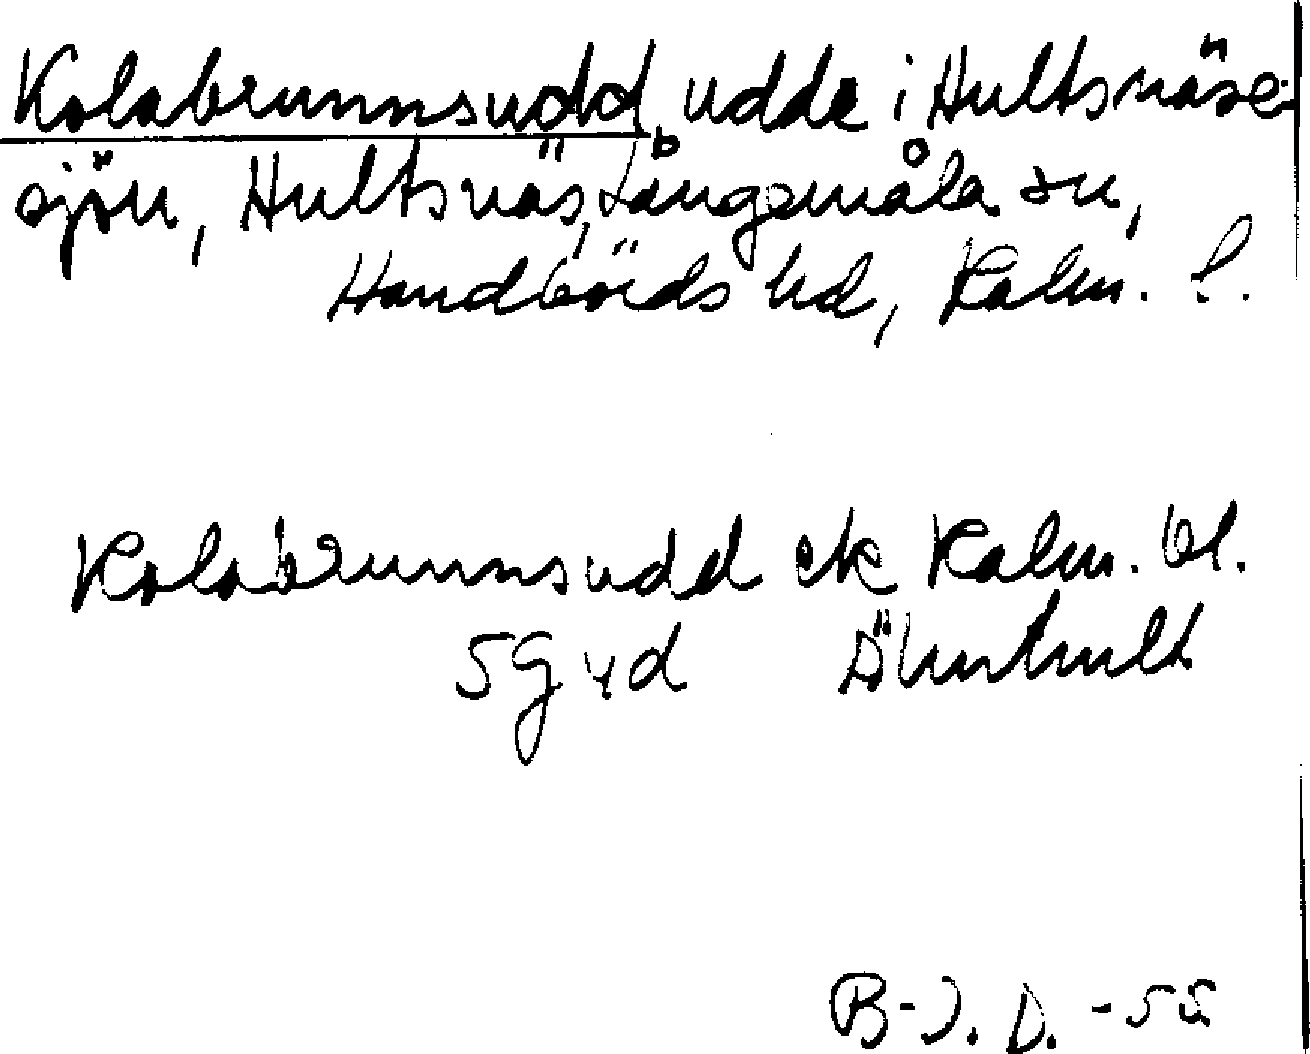 Kolabrunnsudd, udde i Hultsnäse-
sjön, Hultsnäs, Långemåla sn,
Handbörds hd, Kalm. l.
Kolabrunnsudd ek Kalm. bl.
5G vd Älmhult
B-J. D. -55